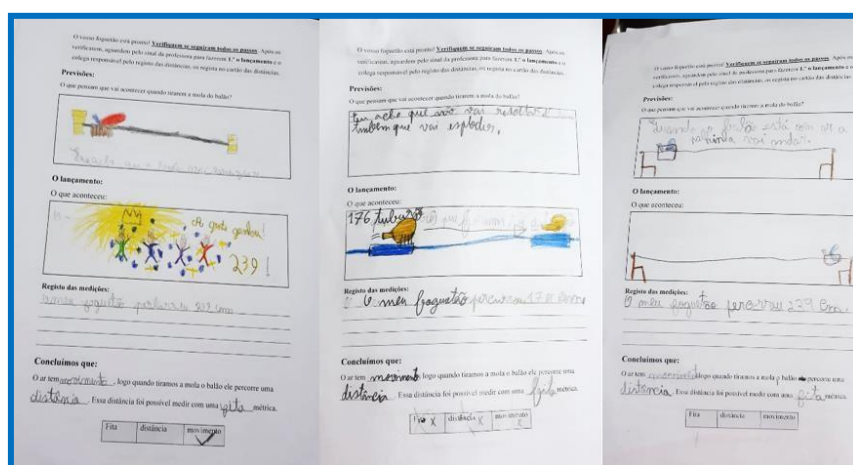 O vosso foguetão está pronto! Verifiquem se seguiram todos os passos. Após os
verificarem, aguardem pelo sinal da professora para fazerem 1.º o lançamento e o
colega responsável pelo registo das distâncias, os regista no cartão das distâncias.
Previsões:
O que pensam que vai acontecer quando tirarem a mola do balão?
O lançamento:
O que aconteceu:
A gata ganhou!
239!
Registo das medições:
O meu foguetão
Concluímos que:
O ar tem movimento, logo quando tiramos a mola o balão ele percorre uma
distânsia. Essa distância foi possível medir com uma gita métrica.
Fita distância movimento
O vosso foguetão está pronto! Verifiquem se seguiram todos os passos. Após os
verificarem, aguardem pelo sinal da professora para fazerem 1.º o lançamento e o
colega responsável pelo registo das distâncias, os regista no cartão das distâncias.
Previsões:
O que pensam que vai acontecer quando tirarem a mola do balão?
acho que não vai resultar e
tambem que vai esploder.
O lançamento:
O que aconteceu:
176
Registo das medições:
O meu foguetão
Concluímos que:
O ar tem movimento, logo quando tiramos a mola o balão ele percorre uma
distância. Essa distância foi possível medir com uma fita métrica.
Fita X distância X movimento X
O vosso foguetão está pronto! Verifiquem se seguiram todos os passos. Após os
verificarem, aguardem pelo sinal da professora para fazerem 1.º o lançamento e o
colega responsável pelo registo das distâncias, os regista no cartão das distâncias.
Previsões:
O que pensam que vai acontecer quando tirarem a mola do balão?
está com ar a
vai andar.
O lançamento:
O que aconteceu:
Registo das medições:
O meu foguetão percorreu 239
Concluímos que:
O ar tem movimento, logo quando tiramos a mola o balão percorre uma
distância. Essa distância foi possível medir com uma fita métrica.
Fita distância movimento